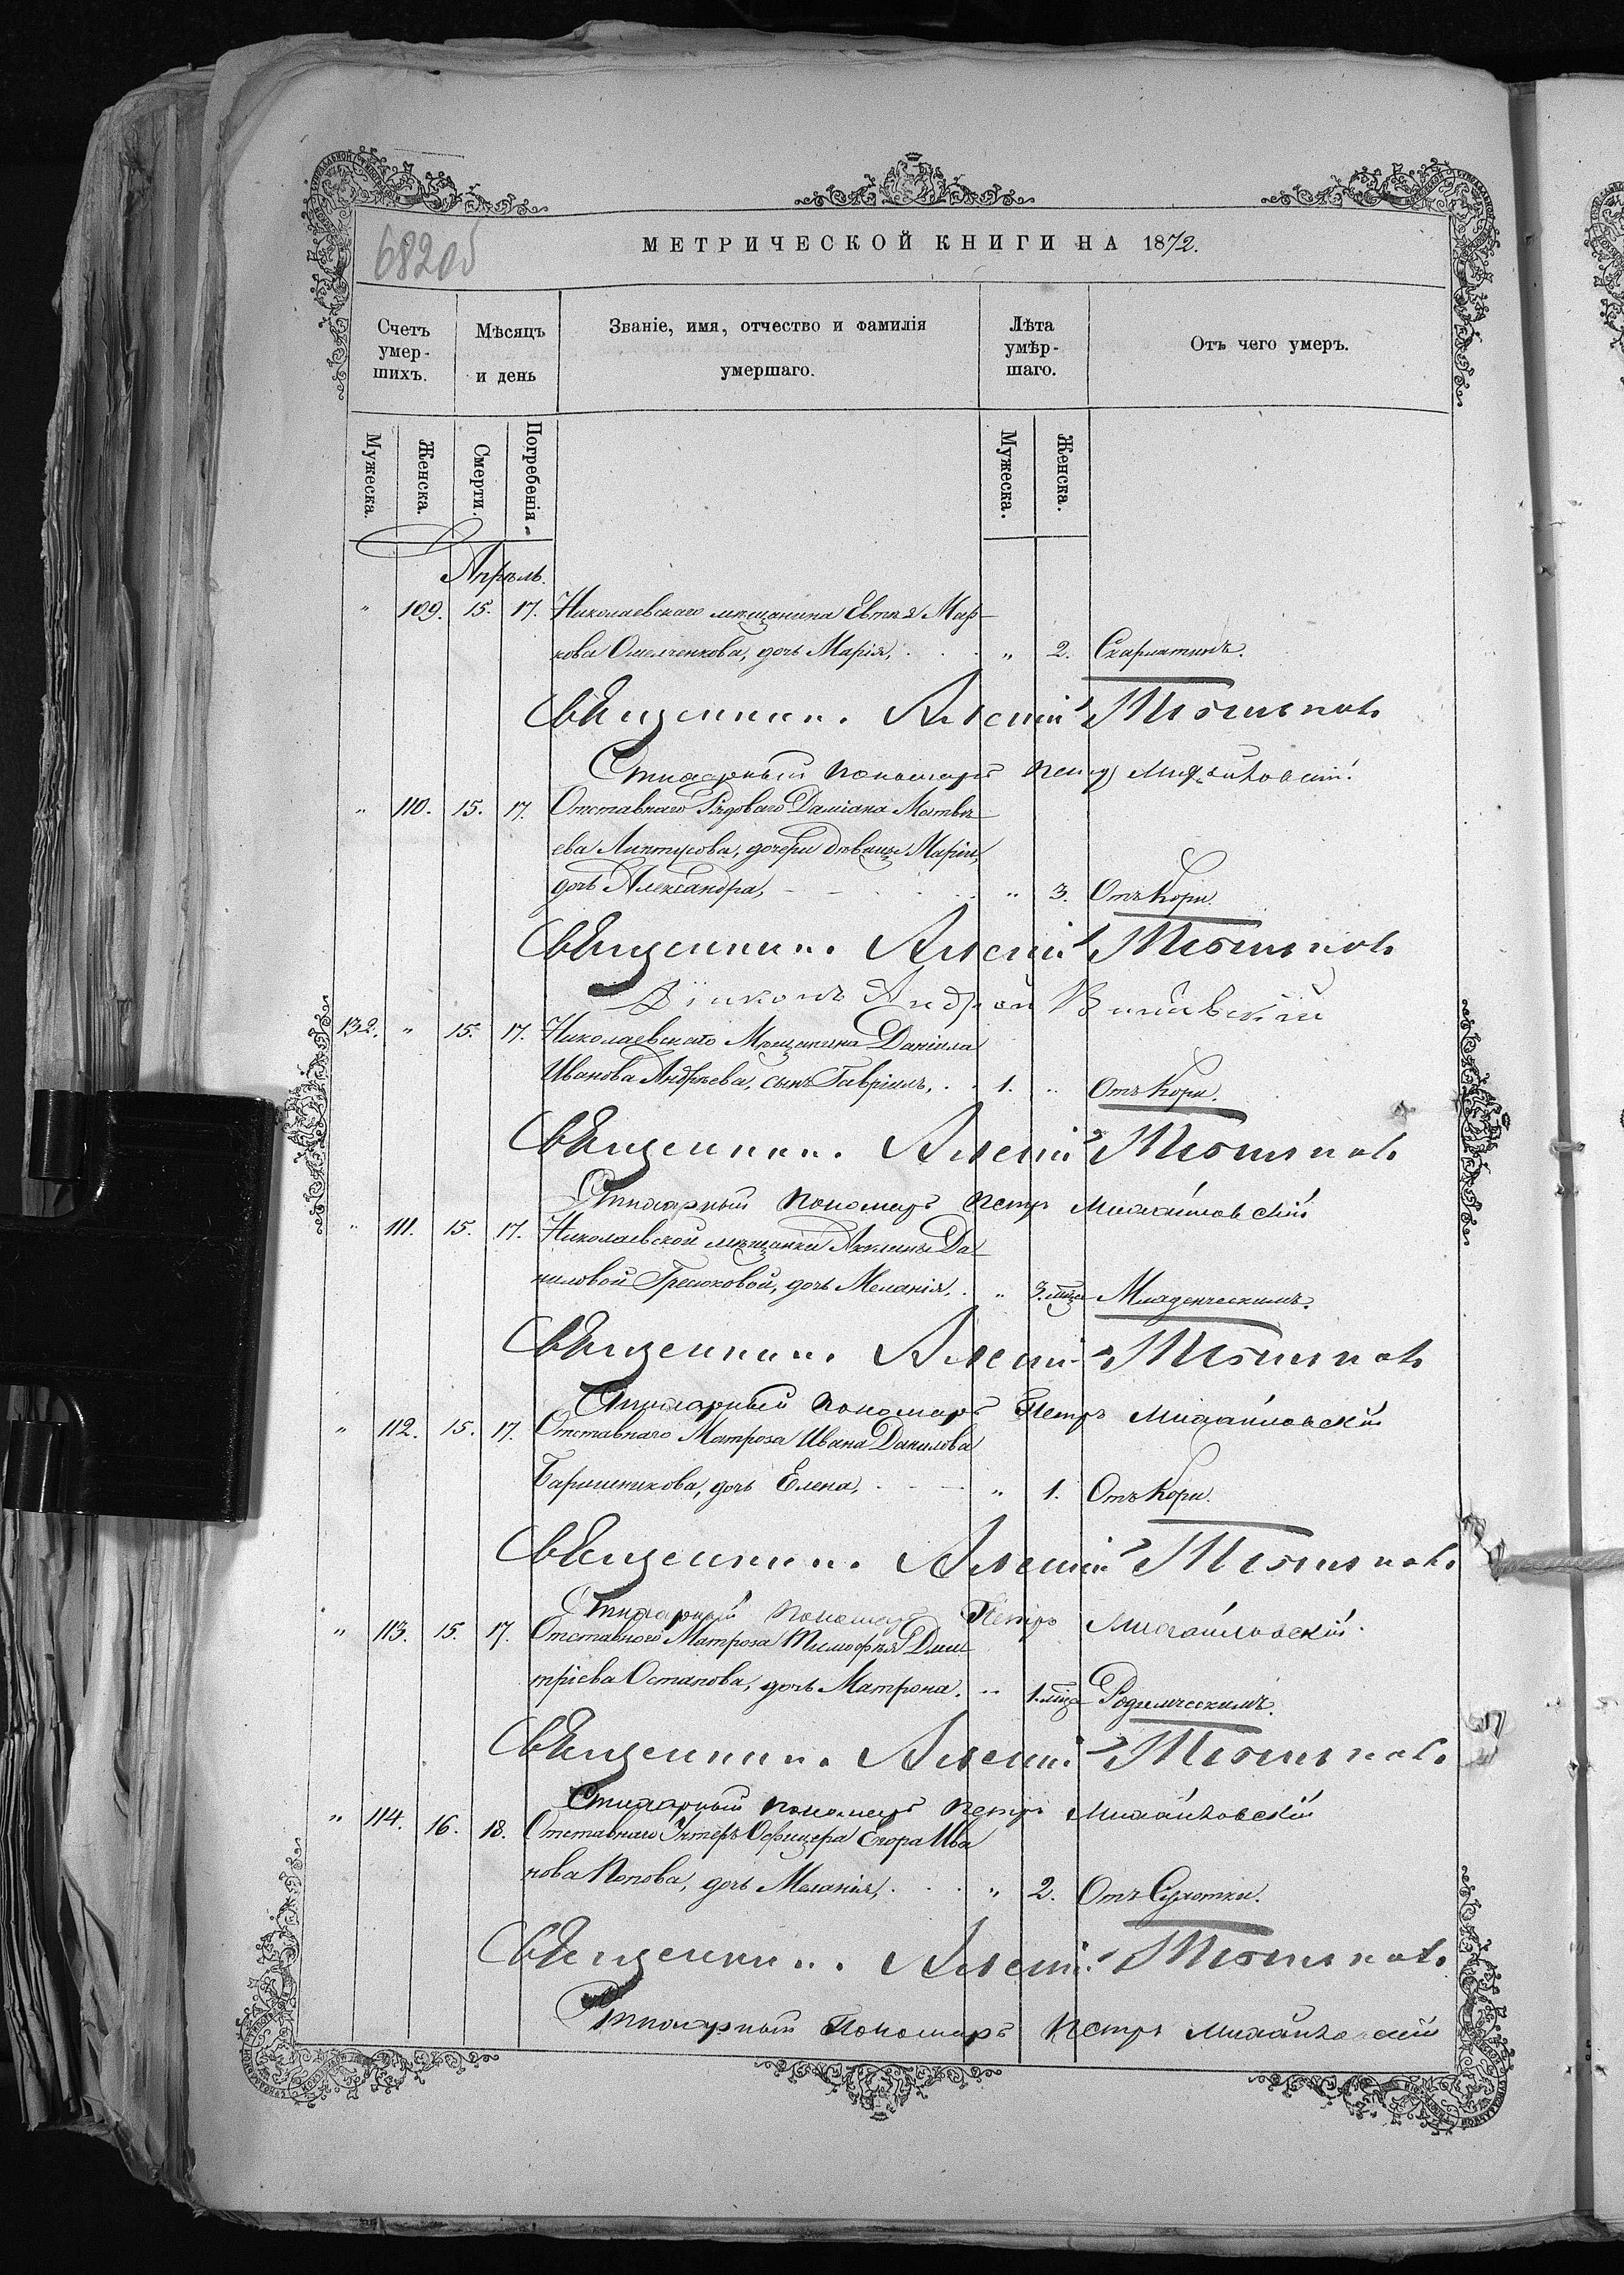 682об
МЕТРИЧЕСКОЙ КНИГИ НА 1872.
Счетъ умер- шихъ.
Мѣсяцъ и день
Званіе, имя, отчество и фамилія умершаго.
Лѣта умѣр- шаго.
Отъ чего умеръ.
Мужеска. Женска. Смерти. Погребенія. Мужеска. Женска.
Апрѣль.
" 109. 15. 17. Николаевскаго мѣщанина Евтея Мар-
кова Омельченкова, дочь Марія, " 2. Скарлатинъ.
Священник Алексій
Стихарный Пономарь Петр Михайловскій.
" 110. 15. 17. Отставнаго Рядоваго Даміана Матвѣ-
ева дочери дѣвицы Маріи,
дочь Александра, " 3. Отъ Кори.
Священник Алексій
Діаконъ Андрей
132. " 15. 17. Николаевскаго Мѣщанина Даніила
Иванова Андреева, сынъ Гавріилъ, 1. " Отъ Кори.
Священник Алексій
Стихарный Пономарь Петр Михайловскій
" 111. 15. 17. Николаевской мѣщанки Акилины Да-
ниловой Гресюковой, дочь Меланія, " 3. мѣся Младенческимъ.
Священник Алексій
Стихарный Пономарь Петръ Михайловскій
" 112. 15. 17. Отставнаго Матроза Ивана Данилова
Барышникова, дочь Елена, " 1. Отъ Кори.
Священник Алексій
Стихарный Пономарь Петръ Михайловскій.
" 113. 15. 17. Отставнаго Матроза Тимофѣя Дми-
тріева Остапова, дочь Матрона. " 1. мѣся Родимческимъ.
Священник Алексій
Стихарный Пономарь Петръ Михайловскій
" 114. 16. 18. Отставнаго Унтеръ Офицера Егора Ива
нова Попова, дочь Меланія, " 2. Отъ Сухотки.
Священник Алексій
Стихарный Пономарь Петръ Михайловскій